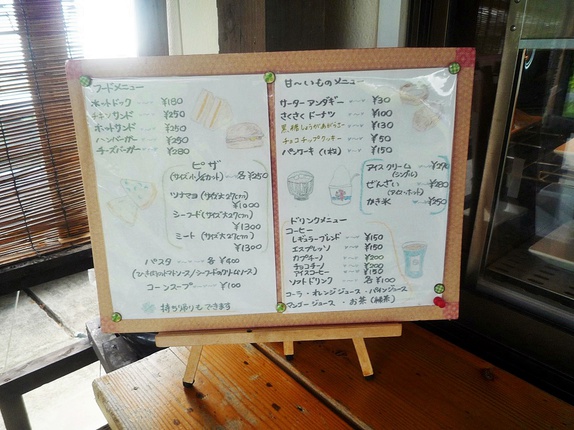 フードメニュー
ホットドック ¥180
チキンサンド ¥250
ホットサンド ¥250
ハンバーガー ¥250
チーズバーガー ¥280
ピザ
各¥250
ツナマヨ(サイズ大27cm)
¥1000
シーフード(サイズ大27cm)
¥1300
ミート(サイズ大27cm)
¥1300
パスタ 各¥400
コーンスープ ¥100
持ち帰りもできます
甘〜いものメニュー
サーターアンダギー ¥30
さくさくドーナツ ¥100
黒糖しょうがあがらさー ¥130
チョコチップクッキー ¥50
パンケーキ(1枚) ¥150
アイスクリーム
(シングル)
ぜんざい ¥280
(アイス・ホット)
かき氷 ¥250
ドリンクメニュー
コーヒー
レギュラーブレンド ¥150
エスプレッソ ¥150
カプチーノ ¥200
チョコチーノ ¥200
アイスコーヒー ¥150
ソフトドリンク 各¥100
コーラ・オレンジジュース・パインジュース
マンゴージュース・お茶(緑茶)